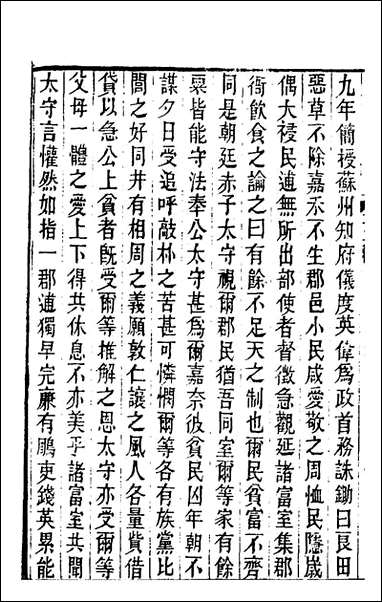 九年簡授蘇州知府儀度英偉爲政首務誅鋤曰良田
惡草不除嘉禾不生郡邑小民咸愛敬之周恤民隱歲
偶大祲民逋無所出部使者督徵急觀延諸富室集郡
衙飮食之論之曰有餘不足天之制也爾民貧富不齊
同是朝廷赤子太守視爾郡民猶吾同室爾等家有餘
粟皆能守法奉公太守甚爲爾嘉奈彼貧民凶年朝不
謀夕日受追呼敲朴之苦甚可憐憫爾等各有族黨比
閭之好同井有相周之義願敦仁讓之風人各量貲借
貸以急公上貧者旣受爾等推解之恩太守亦受爾等
父母一體之愛上下得共休息不亦美乎諸富室共聞
太守言懽然如指一郡逋獨早完廉有鵰吏錢英累能